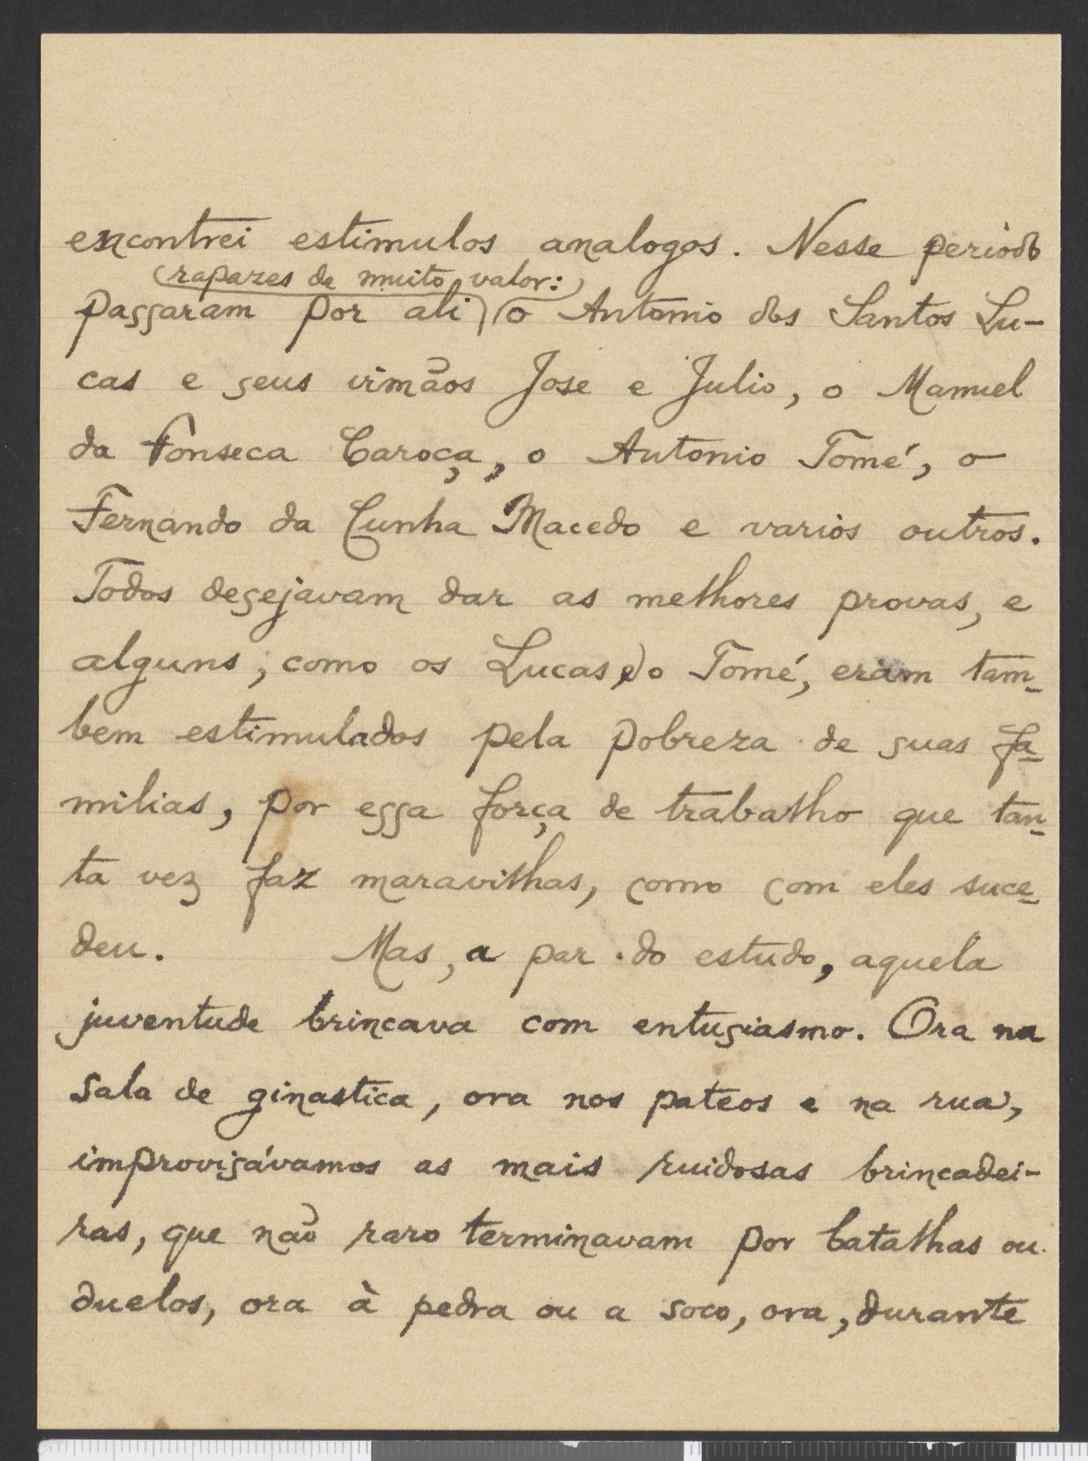 encontrei estimulos analogos. Nesse periodo
rapazes de muito valor:
passaram por ali o Antonio dos Santos Lu-
cas e seus irmãos Jose e Julio, o Manuel
da Fonseca Caroça, o Antonio Tomé, o
Fernando da Cunha Macedo e varios outros.
Todos desejavam dar as melhores provas, e
alguns, como os Lucas e o Tomé, eram tam-
bem estimulados pela pobreza de suas fa-
milias, por essa força de trabalho que tan-
ta vez faz maravilhas, como com eles suce-
deu. Mas, a par do estudo, aquela
juventude brincava com entusiasmo. Ora na
sala de ginastica, ora nos pateos e na rua,
improvisávamos as mais ruidosas brincadei-
ras, que não raro terminavam por batalhas ou
duelos, ora à pedra ou a soco, ora, durante